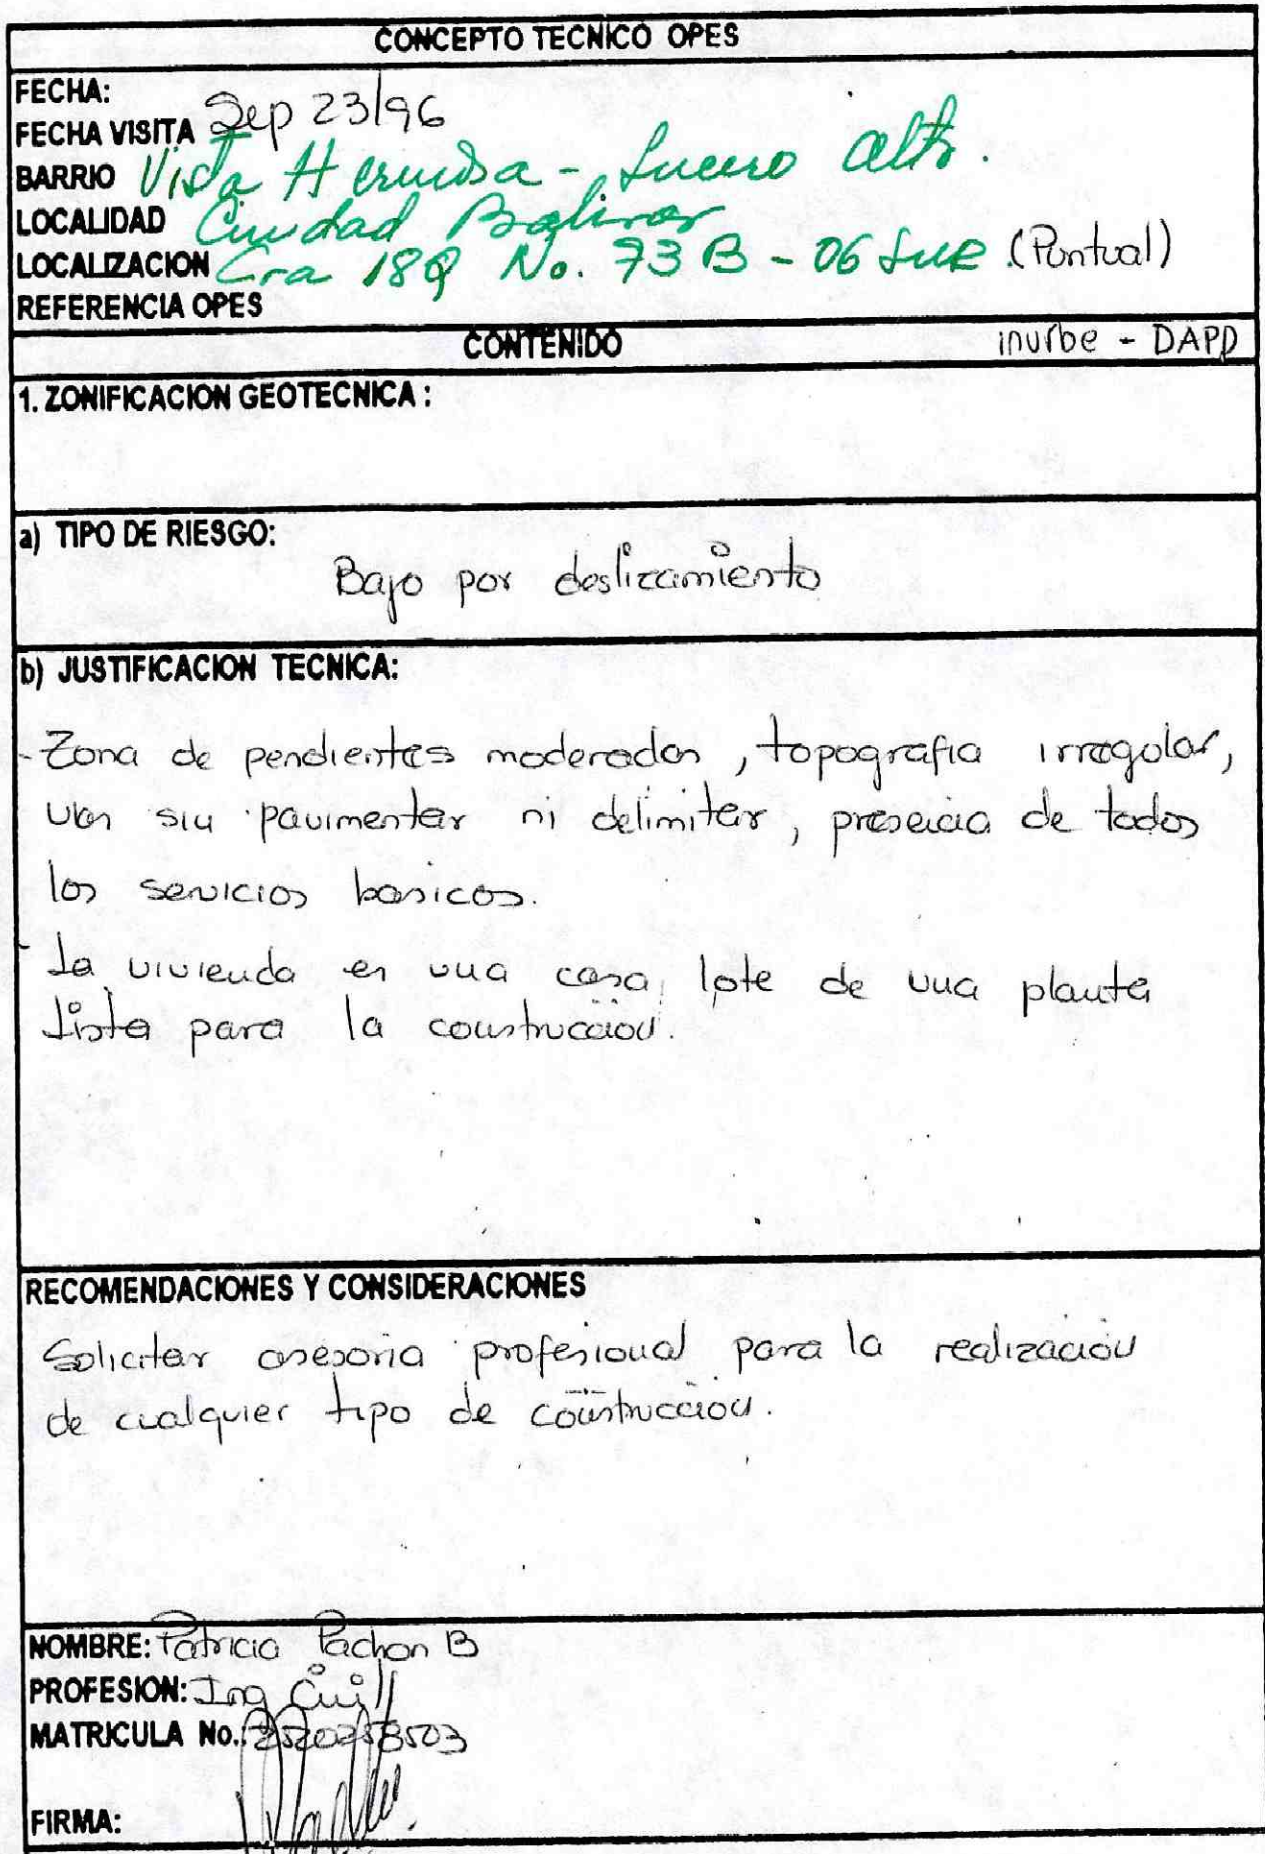 CONCEPTO TECNICO OPES
FECHA:
FECHA VISITA Sep 23/96
BARRIO Vista Hermosa - Lucero Alto.
LOCALIDAD Ciudad Bolivar
LOCALIZACION Cra 18Q No. 73 B - 06 Sur (Puntual)
REFERENCIA OPES
CONTENIDO inurbe - DAPD
1. ZONIFICACION GEOTECNICA :
a) TIPO DE RIESGO:
Bajo por deslizamiento
b) JUSTIFICACION TECNICA:
- Zona de pendientes moderadas, topografia irregular,
vias sin pavimentar ni delimitar, presencia de todos
los servicios basicos.
- La vivienda es una casa lote de una planta
lista para la construccion.
RECOMENDACIONES Y CONSIDERACIONES
Solicitar asesoria profesional para la realización
de cualquier tipo de construccion.
NOMBRE: Patricia Pachon B
PROFESION: Ing Civil
MATRICULA No.:
FIRMA: